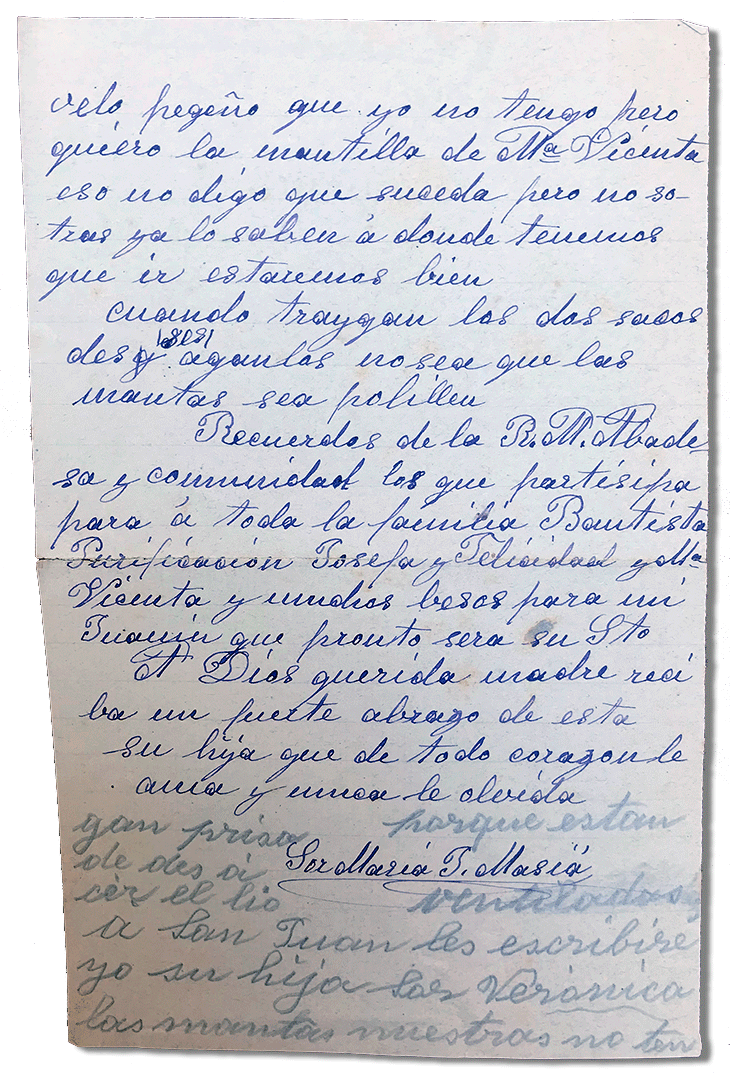 velo pegeño que yo no tengo pero
quiero la mantilla de Mª Vicenta
eso no digo que suceda pero noso-
tras ya lo saben á donde tenemos
que ir estaremos bien
cuando traygan los dos sacos
des
áganlos no sea que las
mantas sea polillen
Recuerdos de la R. M. Abade-
sa y comunidad los que partisipa
para á toda la familia Bautista
Purificación Josefa y Felicidad y Mª
Vicenta y muchos besos para mi
Juanin que pronto sera su Sto
A Dios querida madre reci
ba un fuerte abrazo de esta
su hija que de todo corazon le
ama y nunca le olvida
gan prisa porque estan
de des á Sor Maria J. Masiá
cer el lio ventiladas
a San Juan les escribire
yo su hija Sor Verónica
las mantas nuestras no ten